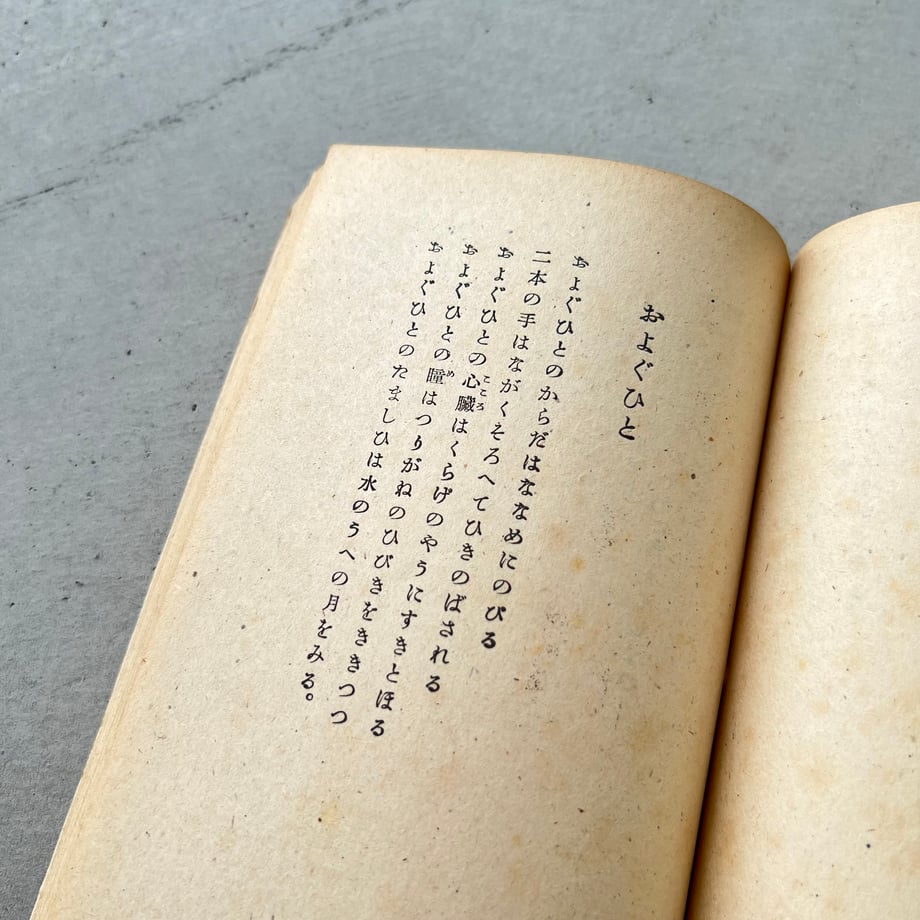 およぐひと
およぐひとのからだはななめにのびる
二本の手はながくそろへてひきのばされる
およぐひとの心臓はくらげのやうにすきとほる
こころ
およぐひとの瞳はつりがねのひびきをききつつ
め
およぐひとのたましひは水のうへの月をみる。